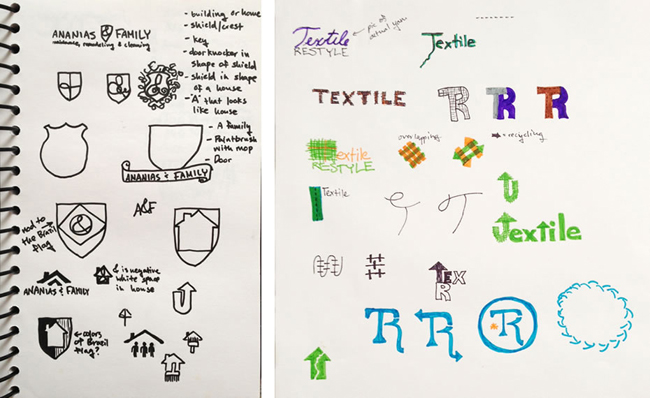 ANANIAS & FAMILY
maintenance, remodeling & cleaning
- building or home
- shield/crest
- key
- door knocker in
shape of shield
- shield in shape
of a house
- "A" that looks
like house
- A family
- Paintbrush
with mop
- Door
&
&
ANANIAS & FAMILY
A&F
Nod to
the Brazil
flag
&
ANANIAS & FAMILY
& is negative
white space
in house
colors
of Brazil
flag?
Textile
RESTYLE
pic of
actual yarn
Textile
TEXTILE
TR
TR
TR
Textile
RESTYLE
overlapping
recycling
Textile
Textile
TEX
R
TR
TR
TR